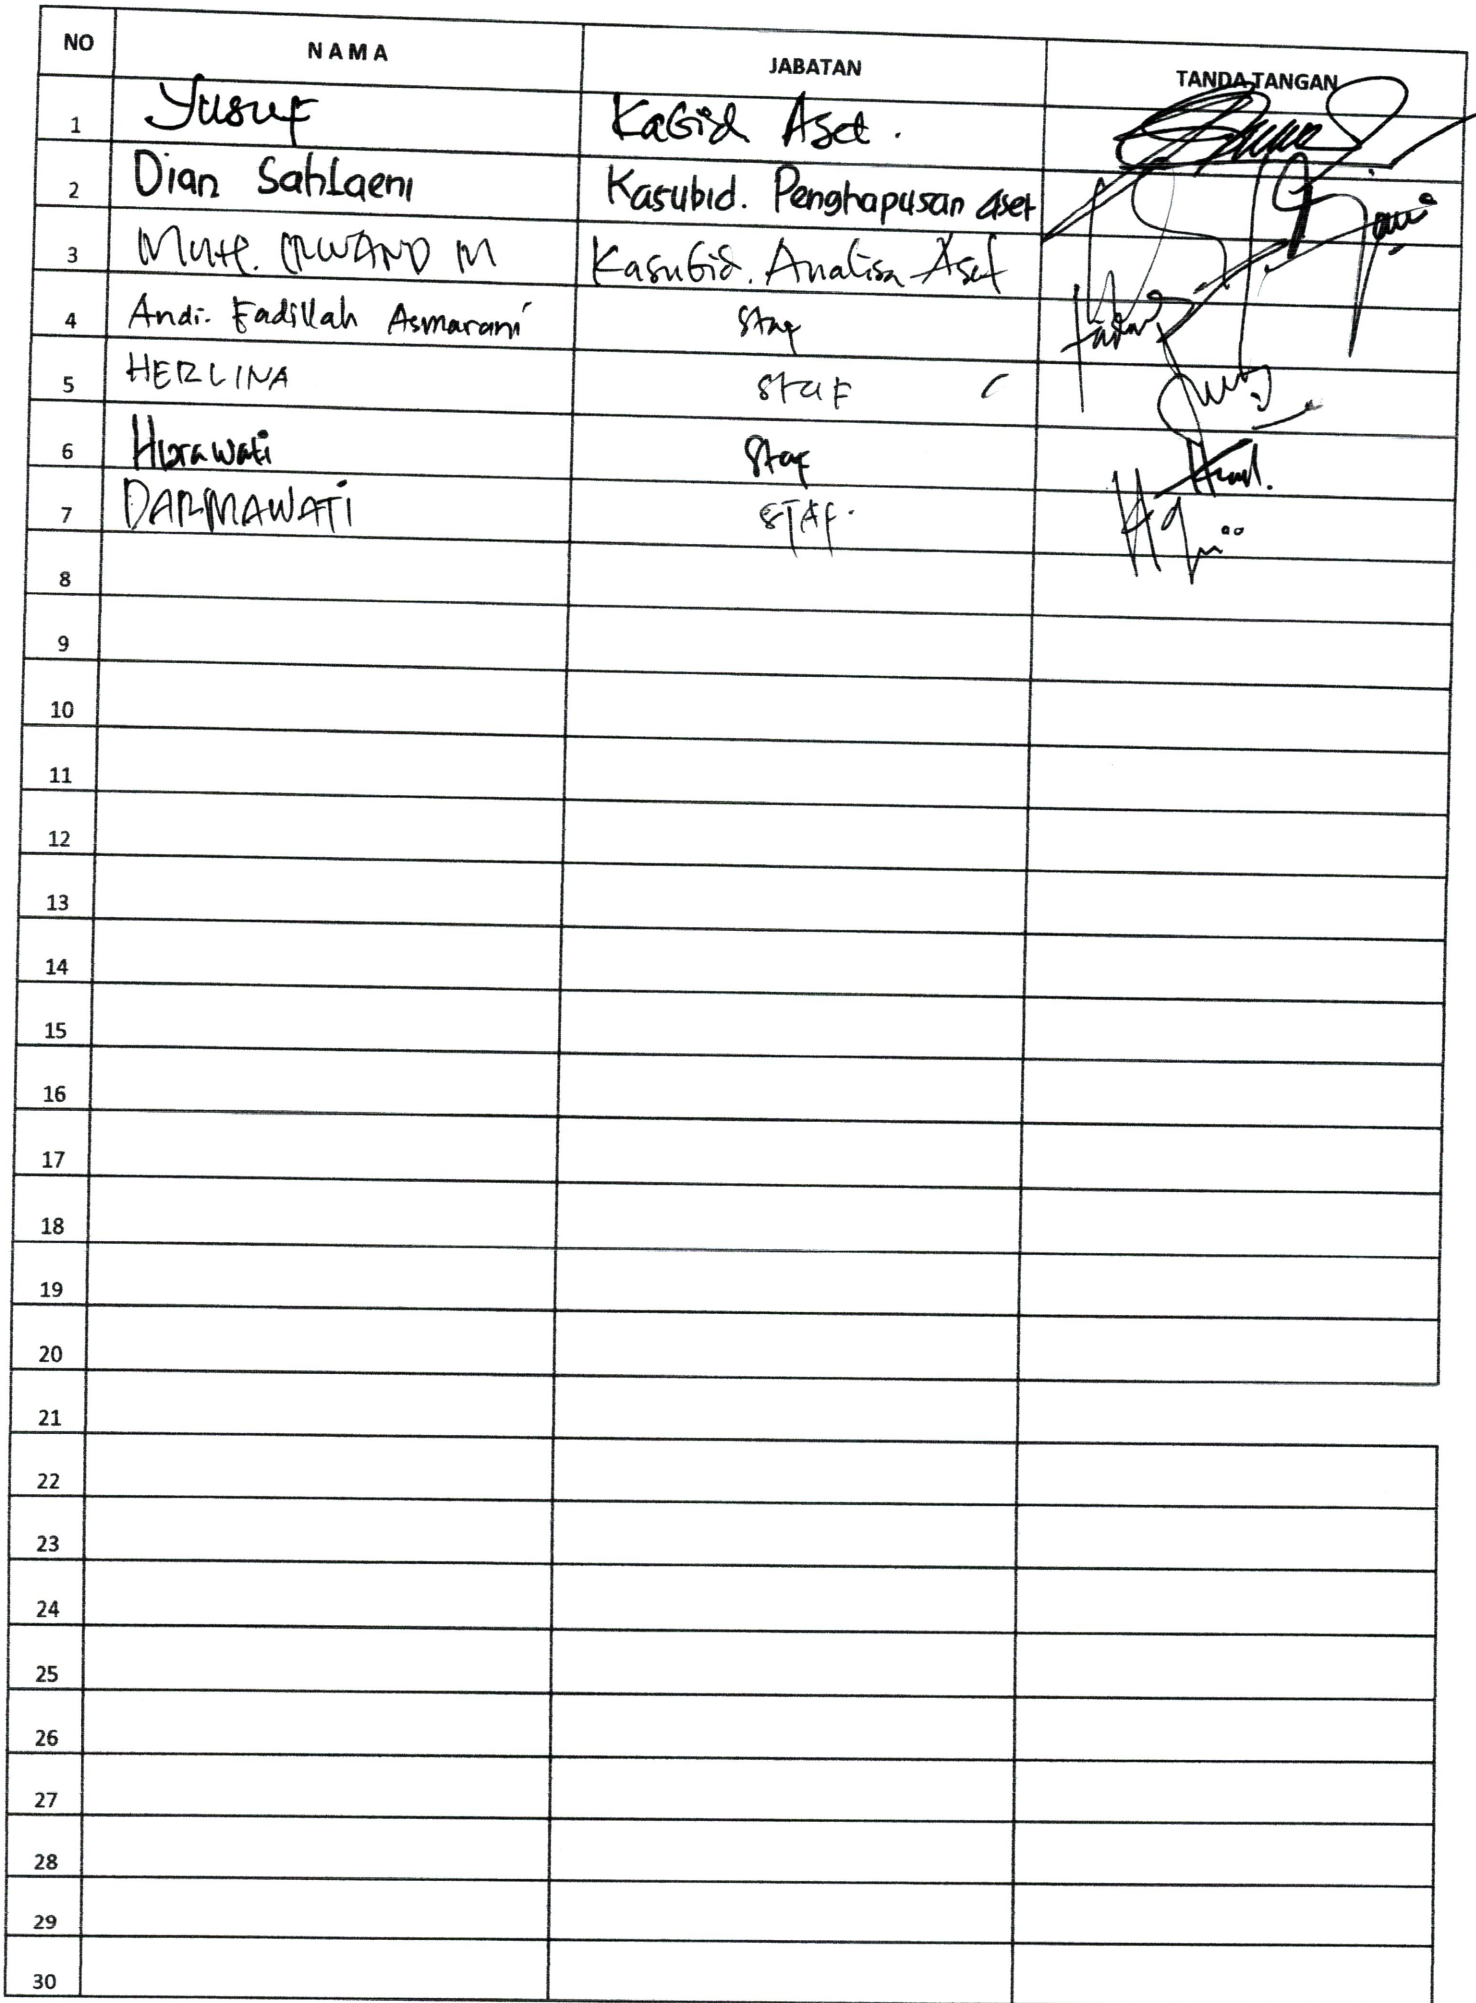 NO NAMA JABATAN TANDA TANGAN
1 Yusuf Kabid Aset.
2 Dian Sahlaeni Kasubid. Penghapusan Aset
3 Muh. IRWAND M Kasubid. Analisa Aset
4 Andi. Fadillah Asmarani Staf
5 HERLINA Staf
6 Hirawati Staf
7 DARMAWATI STAF.
8
9
10
11
12
13
14
15
16
17
18
19
20
21
22
23
24
25
26
27
28
29
30